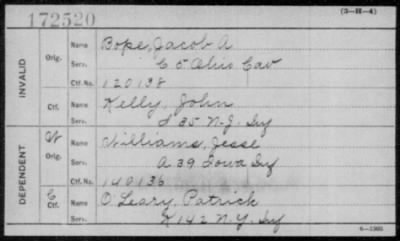 172520
(3-H-4)
INVALID
Orig.
Name Bope, Jacob A
Serv. C 5 Ohio Cav
Ctf. No. 120138
Ctf.
Name Kelly, John
Serv. I 35 N-J. Inf
DEPENDENT
W
Orig.
Name Williams, Jesse
Serv. A 39 Iowa Inf
Ctf. No. 140136
C
Ctf.
Name O'Leary, Patrick
Serv. K 142 N.Y. Inf